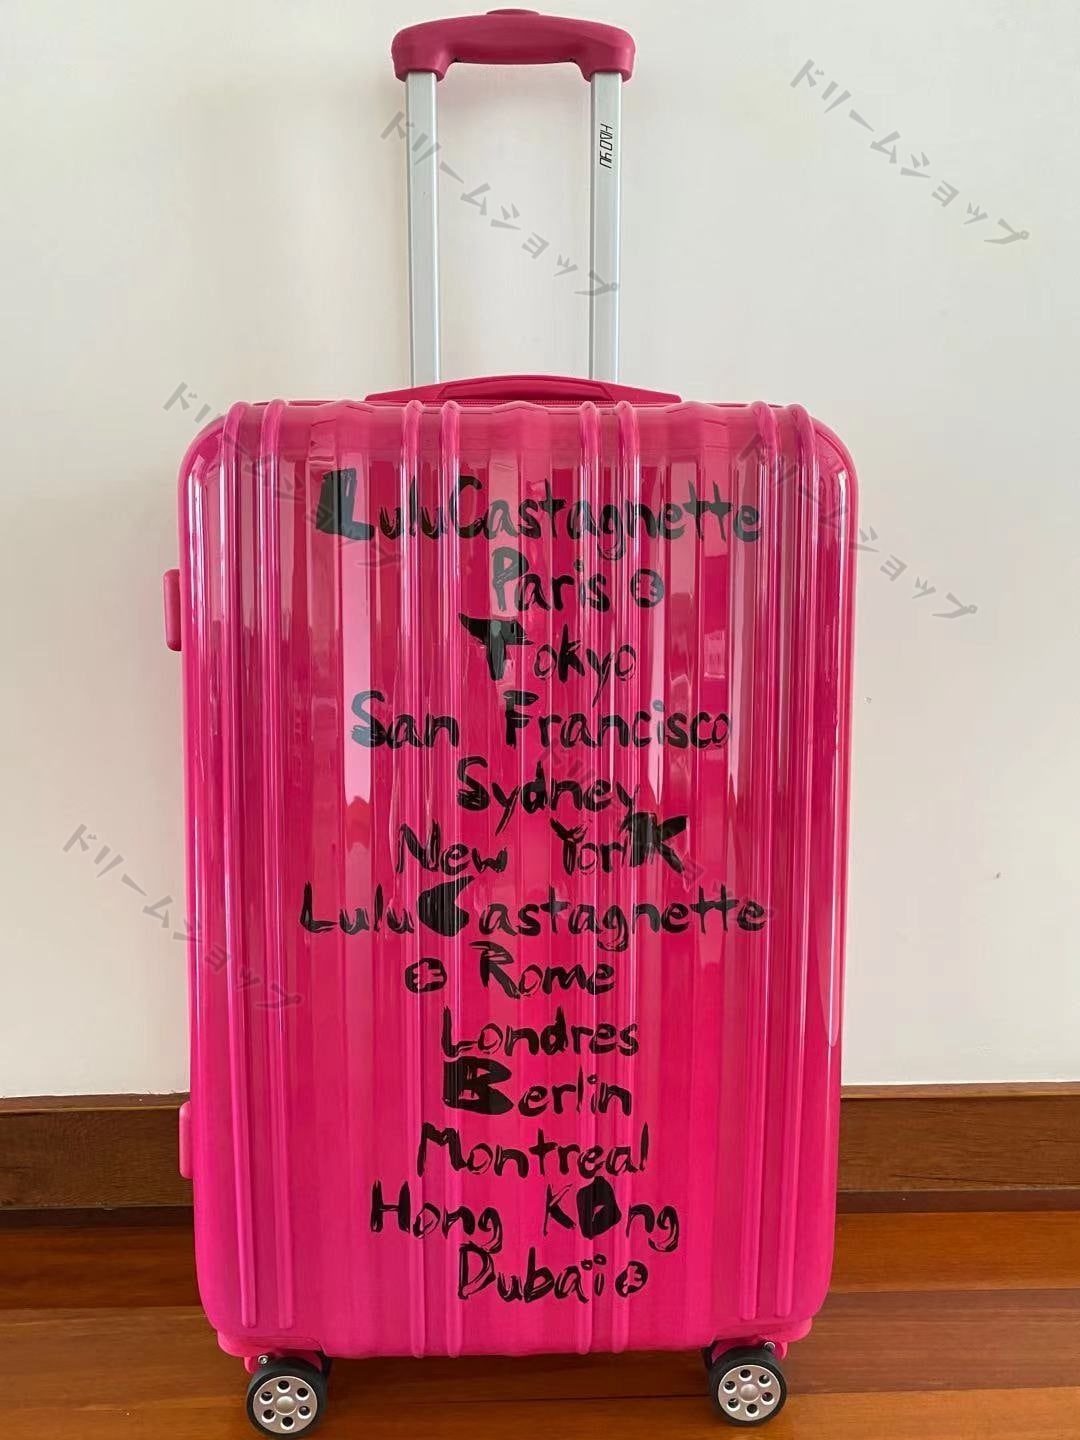 HAOYU
ドリームショップ
ドリームショップ
LuluCastagnette
Paris
Tokyo
San Francisco
Sydney
New York
LuluCastagnette
Rome
Londres
Berlin
Montreal
Hong Kong
Dubaï
ドリームショップ
ドリームショップ
ドリームショップ